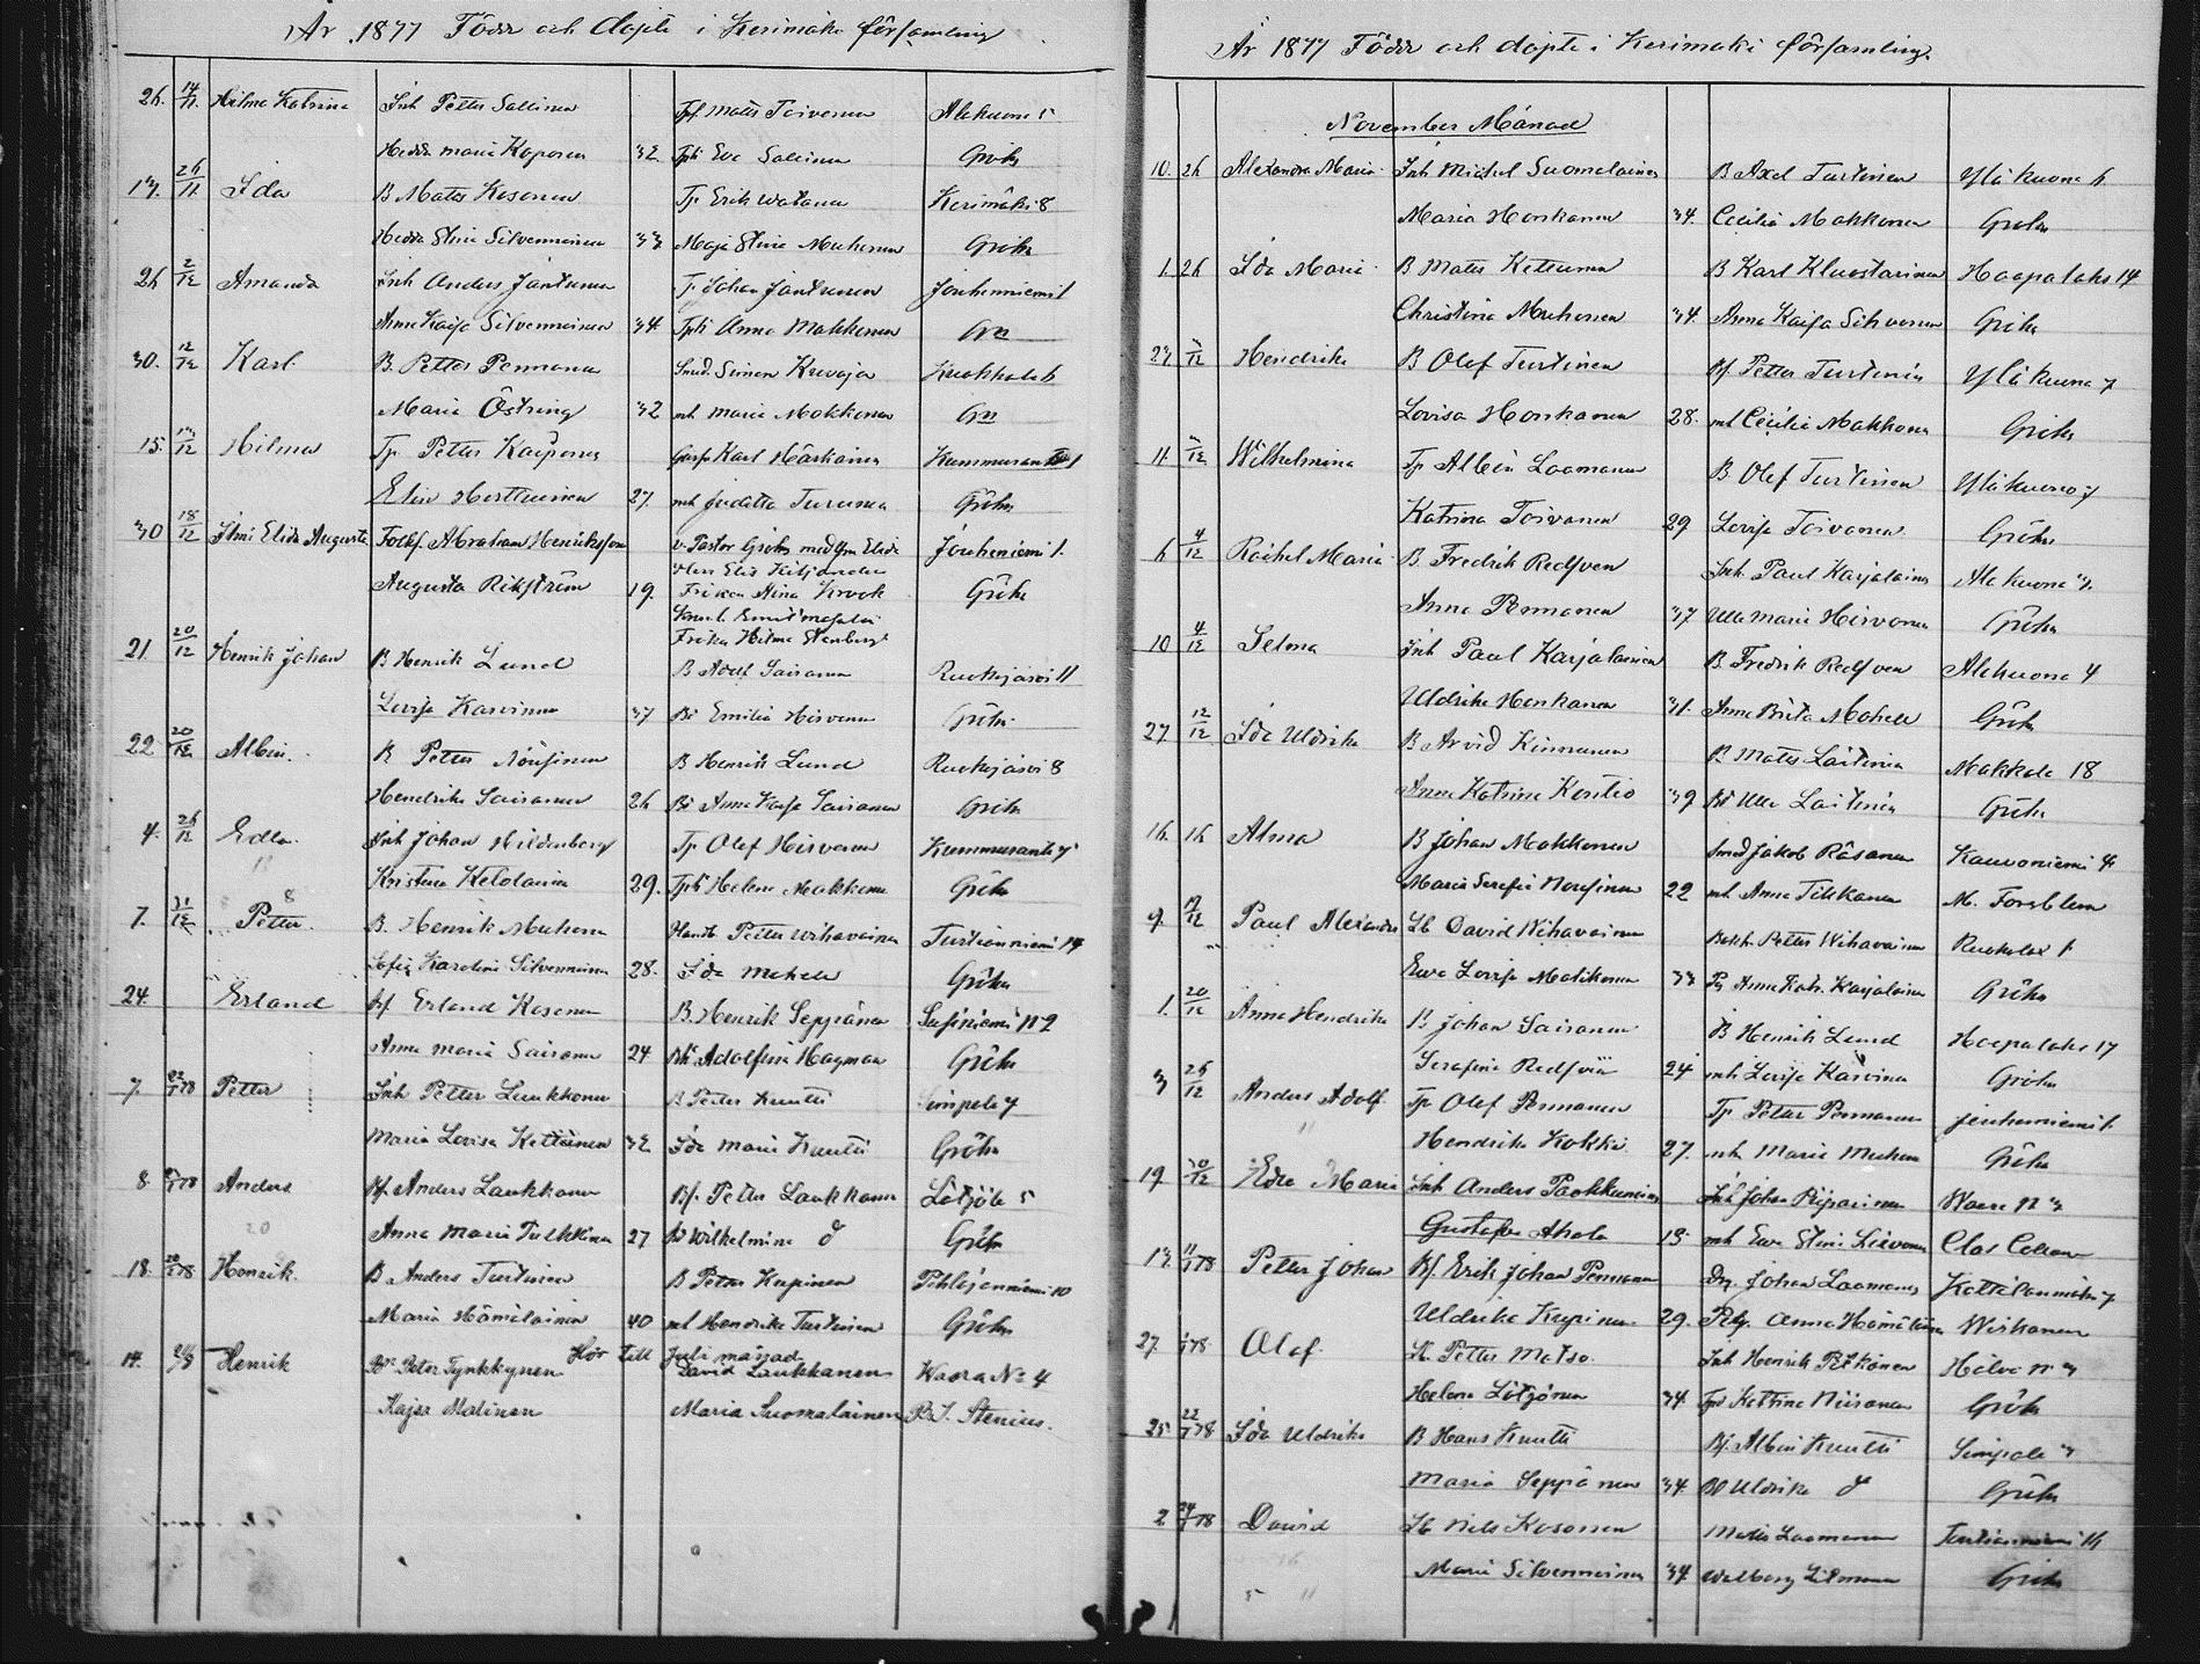 År 1877 Födde och döpte i Kerimäki församling
26. 14/11. Hilma Katrina Inh Petter Sallinen Tpf. Mats Toivonen Alakuona 5
Hedda Maria Koponen 32 Tpti Eva Sallinen Gröhn
17. 26/11 Ida B Mats Kosonen Tp Erik Watanen Kerimäki 8
Hedda Stina Silvennoinen 33 Maja Stina Muhonen Gröhn
26 2/12 Amanda Inh Anders Jantunen T. Johan Jantunen Jouhenniemi 1
Anna Kaisa Silvennoinen 34 Tpti Anna Makkonen Grn
30. 12/12 Karl B. Petter Pennanen Smed. Simon Kuokkala 6
Maria Östring 32 mh Maria Makkonen Grn
15. 12 Hilma Tp Petter Kaiponen Karl Härkänen Kummuranta 1
Elin Herttuinen 27. mh Juditta Turunen Gröhn
30 18/12 Elida Augusta Folkf. Abraham Henriksson v. Pastor Gröhn med Elida Jouhenniemi 1.
Herr Elis Kiljander
Augusta Rikström 19. Fröken Aina Krook Gröhn
Emil
Fröken Hilma Stenberg
21 20/12 Henrik Johan B Henrik Lund B Adolf Sairanen Ruokojärvi 11
Lovisa Karvinen 37 Bi Emilia Hirvonen Gröhn
22 20/12 Albin. B Petter Nousinen B Henrik Lund Ruokojärvi 8
Hendrika Sairanen 26 Bi Anna Kaisa Sairanen Gröhn
4. 26/12 Edla Inh Johan Hildenberg Tp Olof Hirvonen Kummuranta 7
Kristina Ketolainen 29. Tpti Helena Makkonen Gröhn
7. 31/12 Petter. B. Henrik Muhonen Petter Wihavainen Tuutianniemi 14
Sofia Karolina Silvennoinen 28. Ida Gröhn
24. Erland Bf. Erland Kosonen B. Henrik Seppänen N 2
Anna Maria Sairanen 24 Adolfina Hagman Gröhn
7. 78 Petter Inh Petter Laukkonen B Petter Kuutti Simpala 7
Maria Lovisa Kettunen 32 Ida Maria Kuutti Gröhn
8 78 Anders Bf. Anders Laukkanen Bf. Petter Laukkanen Lötjölä 5
Anna Maria Tulkkinen 27 Bd Wilhelmina d Gröhn
18. 78 Henrik. B Anders Turtinen B Petter Kupinen Pihlajaniemi 10
Maria Hämäläinen 40 mh Hendrika Turtinen Gröhn
Hör till Juli månad
14. Henrik Bn Petter Tynkkynen David Laukkanen Waara No 4
Kajsa Matinen Maria Suomalainen B. J. Stenius.
År 1877 Födde och döpte i Kerimäki församling.
November Månad
10. 26 Alexandra Maria Inh Michel Suomalainen B Axel Turtinen Yläkuona 6
Maria Honkanen 34. Cecilia Makkonen Gröhn
1. 26 Ida Maria B Mats Kettunen B Karl Kluostarinen Haapalaks 14
Christina Muhonen 34. Anna Kaisa Sihvonen Gröhn
27. 12 Hendrika B Olof Turtinen Bf. Petter Turtinen Yläkuona 7
Lovisa Honkanen 28. mh Cecilia Makkonen Gröhn
11. 12 Wilhelmina Tp Albin Laamanen B Olof Turtinen Yläkuona 7
Katrina Toivonen 29. Lovisa Toivonen Gröhn
6 4/12 Rachel Maria B Fredrik Redsven Inh Paul Karjalainen Alakuona 3
Anna Pennanen 37 Ulla Maria Hirvonen Gröhn
10 4/12 Selma Inh Paul Karjalainen B. Fredrik Redsven Alakuona 4
Uldrika Honkanen 31. Anna Brita Gröhn
27. 12/12 Ida Uldrika B Arvid Kinnunen B Mats Laitinen Makkola 18
Anna Katrina Kontio 39 Bi Ulla Laitinen Gröhn
16. 16 Alma B Johan Makkonen Smed Jakob Räsänen Kauvoniemi 4
Maria Serafia Nousinen 22 mh Anna Tikkanen M. Forsblom
9. 12 Paul Alexander Lb David Wihavainen Petter Wihavainen Ruokolax 1
Ewa Lovisa Matikonen 33 Anna Katr. Karjalainen Gröhn
1. 20/12 Anna Hendrika B Johan Sairanen B Henrik Lund Haapalaks 17
Serafina Redsvén 24 mh Lovisa Karvinen Gröhn
3 26/12 Anders Adolf Tp Olof Pennanen Tp Petter Pennanen Jouhenniemi 1.
Hendrika Kokki 27. mh Maria Muhonen Gröhn
19. 30/12 Edla Maria Inh Anders Paakkunainen Inh Johan Piiparinen Waara N 3
Gustafva Ahola 19. mh Ewa Stina Clas Collan
13. 11/1 78 Petter Johan Bf. Erik Johan Pennanen Drg. Johan Laamanen Kattilanmäki 7
Uldrika Kupinen 29. Pig. Anna Hämäläinen Wirkanen
27. 78. Olof. Lb Petter Matso. Inh Henrik Pitkänen Hälvä N 3
Helena Lötjönen 34. Katrina Niiranen Gröhn
25 22/1 78 Ida Uldrika B Hans Kuutti Bf. Albin Kuutti Simpala 3
Maria Seppänen 34. Bd Uldrika d Gröhn
2. 24/1 78 David Lb Nils Kosonen Matts Laamanen Tuutianniemi 16
Maria Silvennoinen 34 Walborg Gröhn